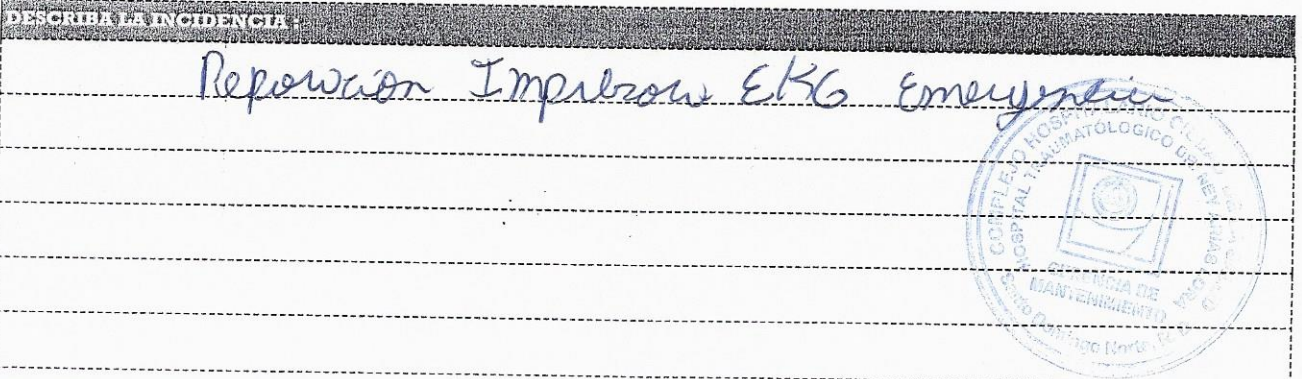 DESCRIBA LA INCIDENCIA :
Reparación Impresora EKG Emergencia
COMPLEJO HOSPITALARIO CIUDAD DE LA SALUD
HOSPITAL TRAUMATOLOGICO DR. NEY ARIAS LORA
GERENCIA DE
MANTENIMIENTO
Santo Domingo Norte, R. D.